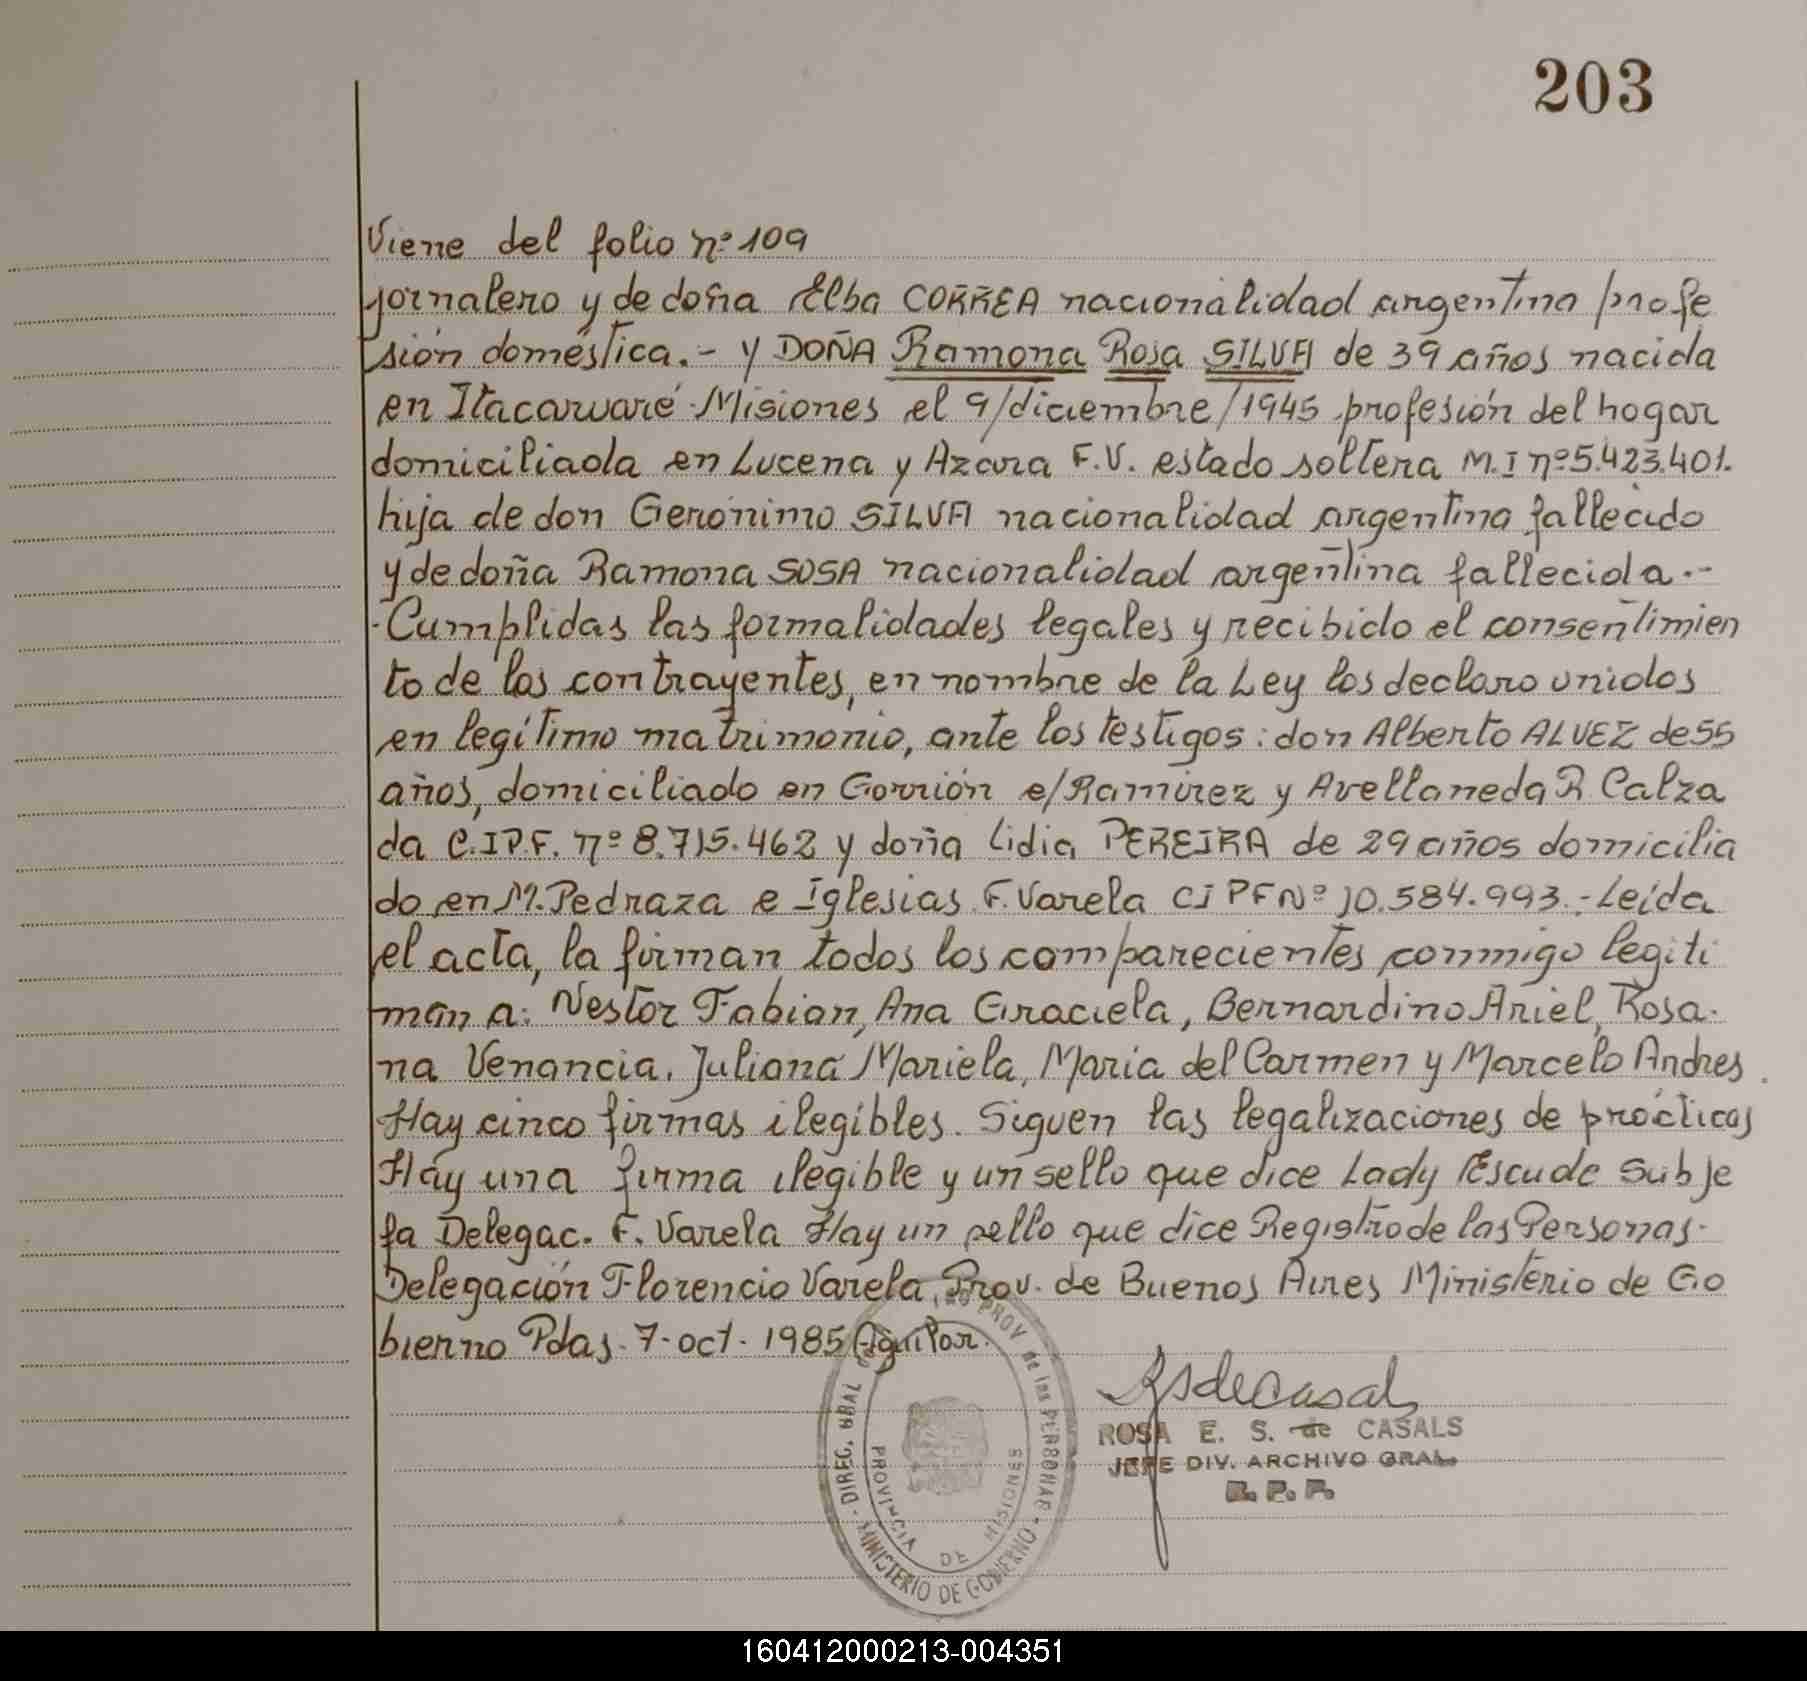 203
Viene del folio nº 109
jornalero y de doña Elba CORREA nacionalidad argentina profe
sión doméstica.- y DOÑA Ramona Rosa SILVA de 39 años nacida
en Itacaruaré-Misiones el 9/diciembre/1945 profesión del hogar
domiciliada en Lucena y Azara F.V. estado soltera M.I nº5.423.401.
hija de don Gerónimo SILVA nacionalidad argentina fallecido
y de doña Ramona SOSA nacionalidad argentina fallecida.-
-Cumplidas las formalidades legales y recibido el consentimien
to de los contrayentes, en nombre de la Ley los declaro unidos
en legítimo matrimonio, ante los testigos: don Alberto ALVEZ de 55
años, domiciliado en Gorrión e/Ramirez y Avellaneda R Calza
da C.IPF. nº 8.715.462 y doña Lidia PEREIRA de 29 años domicilia
do en M. Pedraza e Iglesias F. Varela CIPF Nº 10.584.993.-Leída
el acta, la firman todos los comparecientes conmigo legiti
man a: Nestor Fabian, Ana Graciela, Bernardino Ariel, Rosa-
na Venancia, Juliana Mariela, Maria del Carmen y Marcelo Andres.
Hay cinco firmas ilegibles. Siguen las legalizaciones de prácticas
Hay una firma ilegible y un sello que dice Lady Escude Subje
fa Delegac. F. Varela Hay un sello que dice Registro de las Personas-
Delegación Florencio Varela, Prov. de Buenos Aires Ministerio de Go
bierno Pdas. 7-oct-1985 Aguilar.
DIREC. GRAL PROV de las PERSONAS - MINISTERIO DE GOBIERNO -
PROVINCIA DE MISIONES
RsdeCasals
ROSA E. S. de CASALS
JEFE DIV. ARCHIVO GRAL.
R. P. P.
160412000213-004351